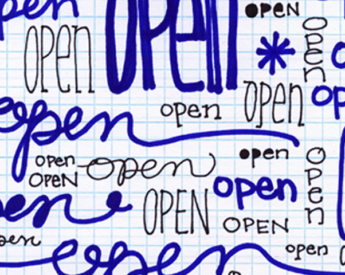 open
open
open
OPEN
open
open
open
open
op
open
open
OPEN
open
open
open
open
OPEN
open
OPEN
open
open
open